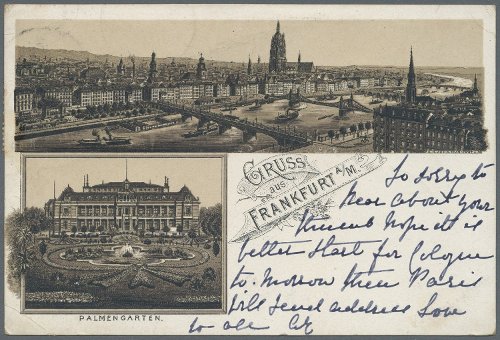 GRUSS
AUS
FRANKFURT A/M.
So sorry to
hear about your
hope it is
better start for Cologne
to-morrow then Paris
will send address love
to all
PALMENGARTEN.